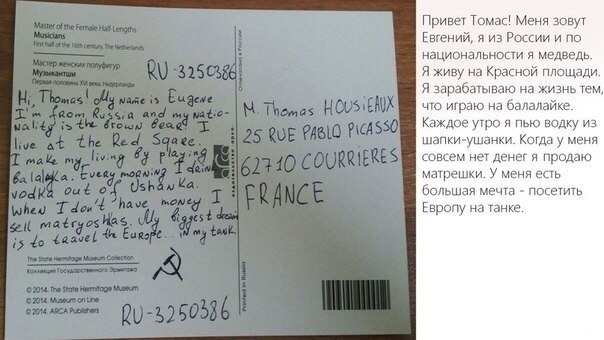 Master of the Female Half-Lengths
Musicians
First half of the 16th century. The Netherlands
Мастер женских полуфигур
Музыкантши
Первая половина XVI века. Нидерланды
RU-3250386
Hi, Thomas! My name is Eugene
I'm from Russia and my natio-
nality is the brown bear. I
live at the Red Sqare.
I make my living by playing
balalayka. Every morning I drink
vodka out of Ushanka.
When I don't have money I
sell matryoshkas. My biggest dream
is to travel the Europe... in my tank.
The State Hermitage Museum Collection
Коллекция Государственного Эрмитажа
© 2014. The State Hermitage Museum
© 2014. Museum on Line
© 2014. ARCA Publishers
RU-3250386
Отпечатано в России
арка
Printed in Russia
M. Thomas HOUSIEAUX
25 RUE PABLO PICASSO
62710 COURRIERES
FRANCE
Привет Томас! Меня зовут
Евгений, я из России и по
национальности я медведь.
Я живу на Красной площади.
Я зарабатываю на жизнь тем,
что играю на балалайке.
Каждое утро я пью водку из
шапки-ушанки. Когда у меня
совсем нет денег я продаю
матрешки. У меня есть
большая мечта - посетить
Европу на танке.